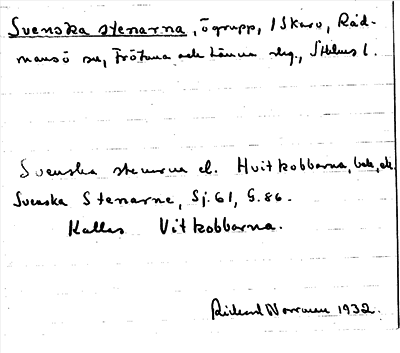 Svenska stenarna, ögrupp, 1 Skaro, Råd-
mansö sn, Frötuna och Länna skg., Sthlms l.
Svenska stenarna el. Hvitkobbarna,
Svenska Stenarne, Sj. 61, G. 86.
Kallas Vitkobbarna.
Rickard Norrman 1932.